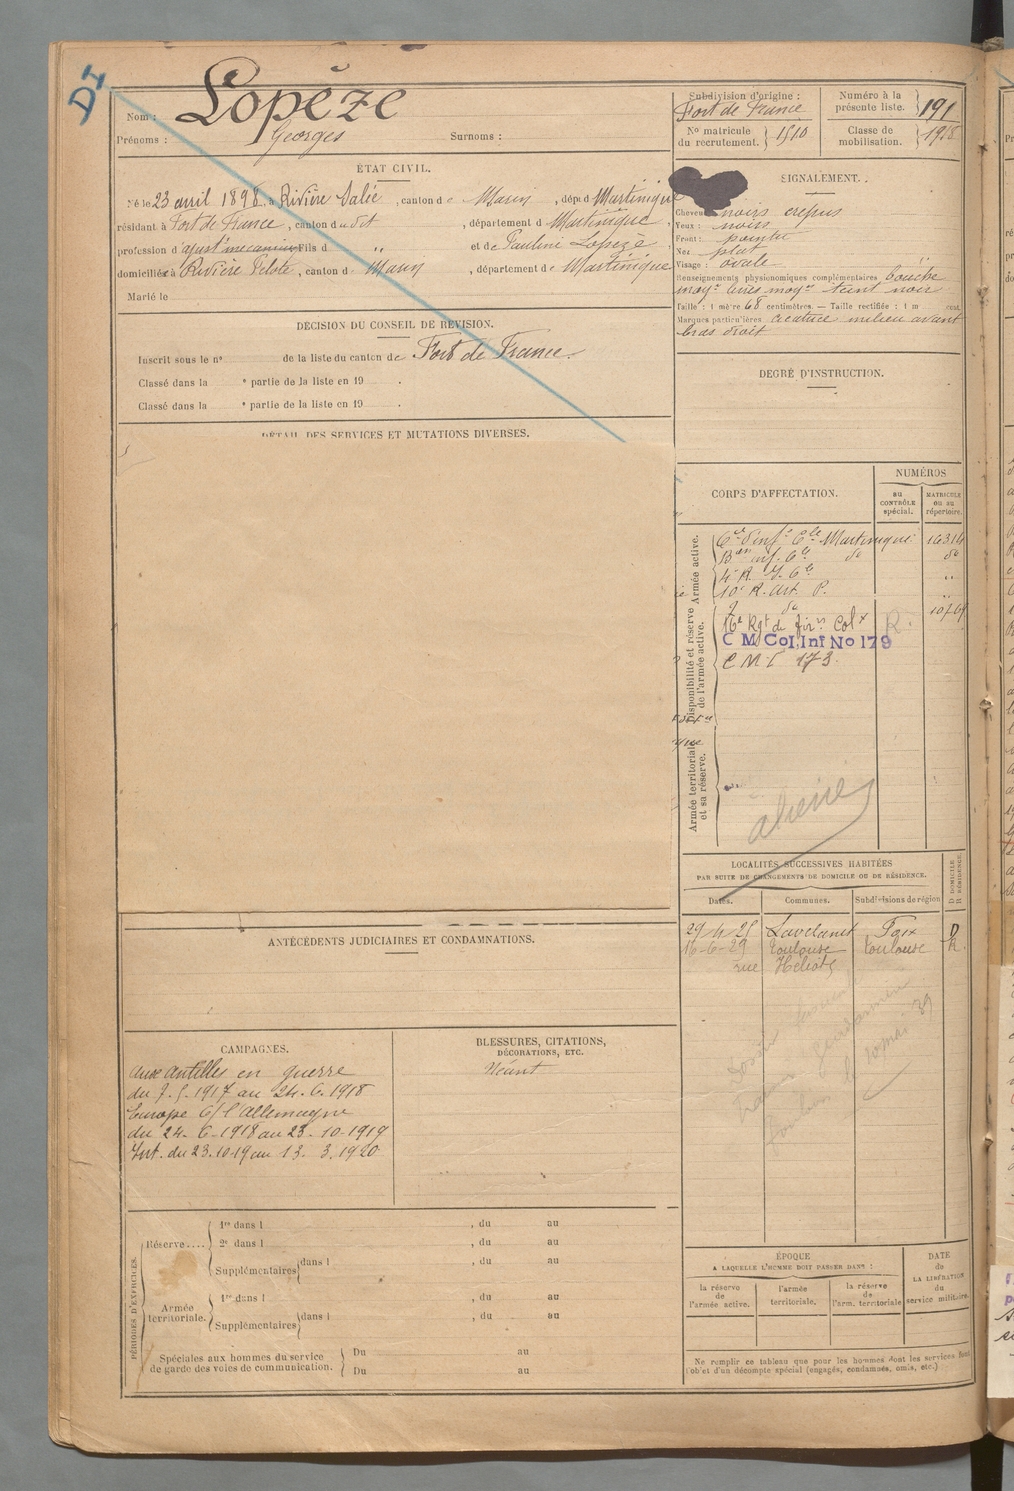 DI
Nom : Lopéze
Prénoms : Georges Surnoms :
ÉTAT CIVIL.
Né le 23 avril 1898, à Rivière Salée, canton de Marin, dépt d Martinique
résidant à Fort de France, canton du dt, département d Martinique,
profession d'ajustr mecanicien Fils d " et de Pauline Lopezè,
domiciliés à Rivière Pilote, canton d Marin, département de Martinique
Marié le
DÉCISION DU CONSEIL DE RÉVISION.
Inscrit sous le nº de la liste du canton de Fort de France.
Classé dans la e partie de la liste en 19 .
Classé dans la e partie de la liste en 19 .
DÉTAIL DES SERVICES ET MUTATIONS DIVERSES.
ANTÉCÉDENTS JUDICIAIRES ET CONDAMNATIONS.
CAMPAGNES.
aux Antilles en guerre
du 7.5.1917 au 24.6.1918
Europe C/ l'Allemagne
du 24-6-1918 au 23.10-1919
Int. du 23.10.19 au 13.3.1920
BLESSURES, CITATIONS,
DÉCORATIONS, ETC.
Néant
PÉRIODES D'EXERCICES.
Réserve....
1re dans l , du au
2e dans l , du au
Supplémentaires dans l , du au
Armée
territoriale.
1re dans l , du au
Supplémentaires dans l , du au
Spéciales aux hommes du service
de garde des voies de communication.
Du au
Du au
Subdivision d'origine :
Fort de France
Nº matricule
du recrutement. 1510
Numéro à la
présente liste. 191
Classe de
mobilisation. 1918
SIGNALEMENT.
Cheveux noirs crépus
Yeux : noirs
Front : 
Nez plat
Visage : ovale
Renseignements physionomiques complémentaires bouche
moyne lèvres moynes teint noir
Taille : 1 mètre 68 centimètres. — Taille rectifiée : 1 m cent.
Marques particulières cicatrice milieu avant
bras droit
DEGRÉ D'INSTRUCTION.
CORPS D'AFFECTATION.
NUMÉROS
au
CONTRÔLE
spécial.
MATRICULE
ou au
répertoire.
Armée active.
Cie d'Infie Cle Martinique 16314
Bon inf. Cle do do
4e R. I. Cle "
10e R. Art. P. "
Disponibilité et réserve
de l'armée active.
2 do 10769
16e Rgt de Colx R.
C M Col.Inf No 179
C M I 173.
Armée territoriale
et sa réserve.
LOCALITÉS SUCCESSIVES HABITÉES
PAR SUITE DE CHANGEMENTS DE DOMICILE OU DE RÉSIDENCE.
Dates. Communes. Subdivisions de région
D DOMICILE
R RÉSIDENCE.
29-4-25 Lavelanet Foix D
16-6-29 Toulouse Toulouse R.
rue Héliot
10 mai 39
ÉPOQUE
A LAQUELLE L'HOMME DOIT PASSER DANS :
la réserve
de
l'armée active.
l'armée
territoriale.
la réserve
de
l'arm. territoriale
DATE
de
LA LIBÉRATION
du
service militaire.
Ne remplir ce tableau que pour les hommes dont les services font
l'objet d'un décompte spécial (engagés, condamnés, omis, etc.)